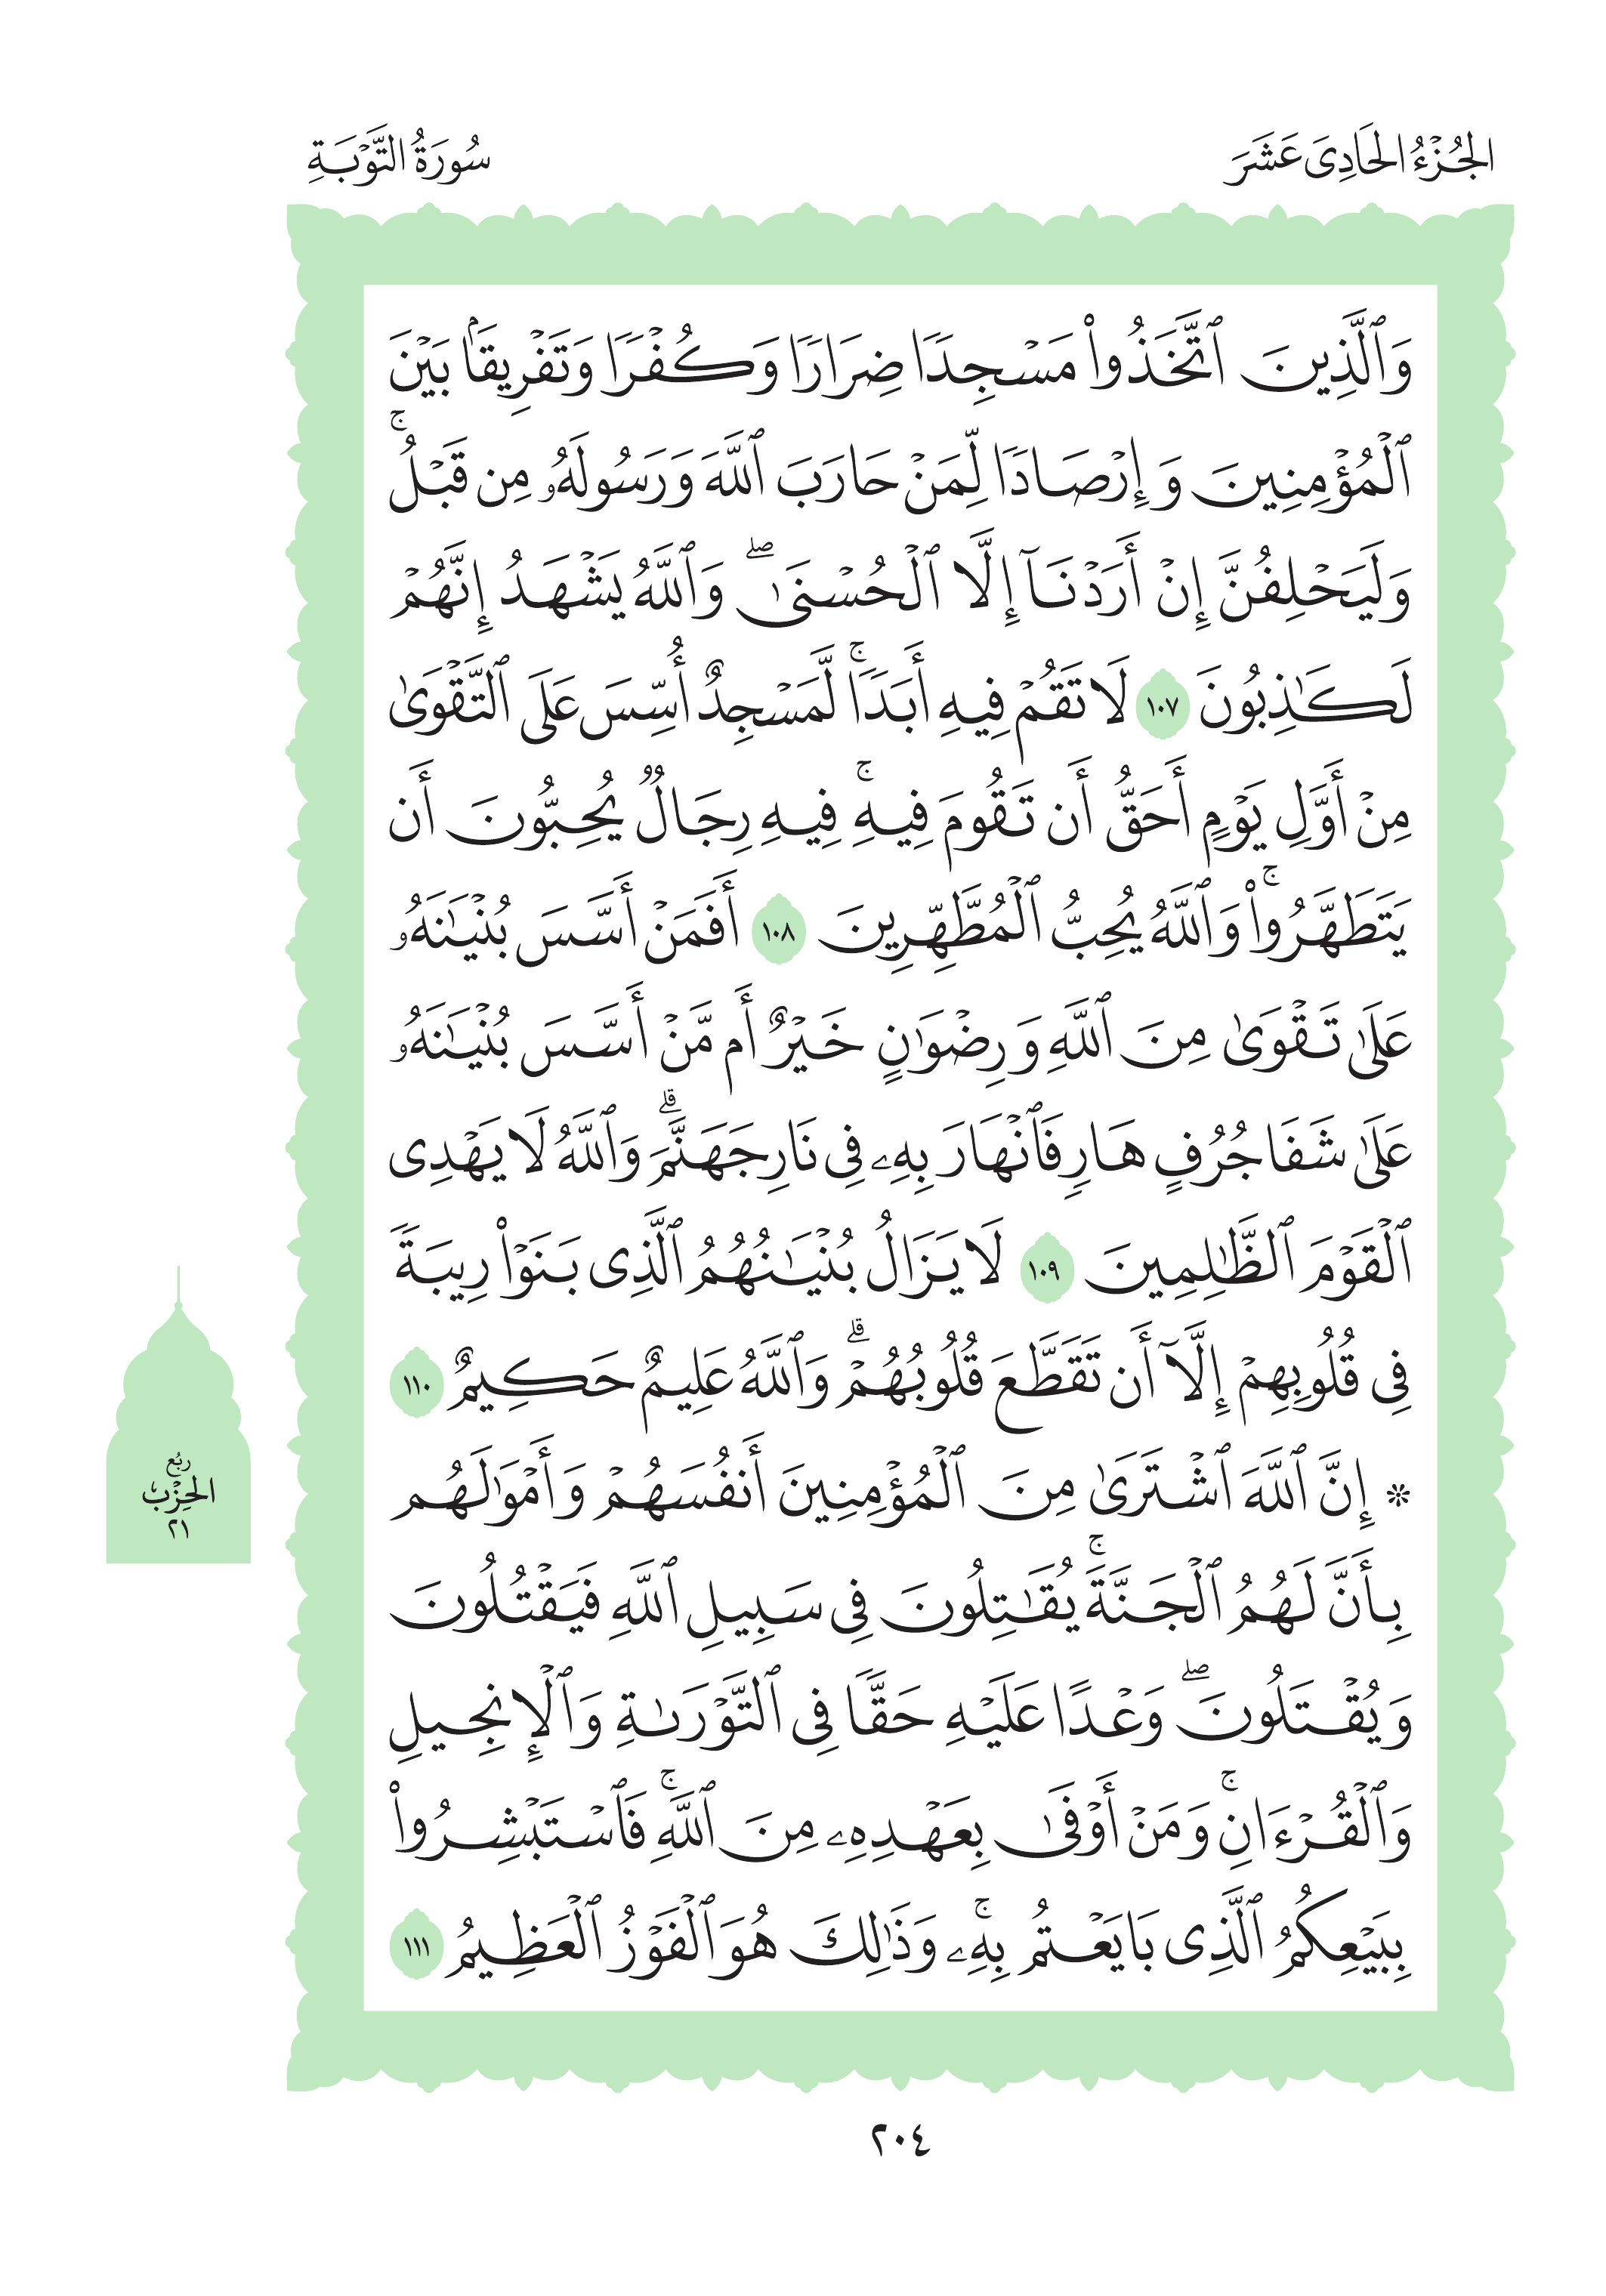 الجُزْءُ الحَادِىَ عَشَرَ
سُورَةُ التَّوْبَةِ
وَٱلَّذِينَ ٱتَّخَذُوا۟ مَسْجِدًا ضِرَارًا وَكُفْرًا وَتَفْرِيقًۢا بَيْنَ
ٱلْمُؤْمِنِينَ وَإِرْصَادًا لِّمَنْ حَارَبَ ٱللَّهَ وَرَسُولَهُۥ مِن قَبْلُ ۚ
وَلَيَحْلِفُنَّ إِنْ أَرَدْنَآ إِلَّا ٱلْحُسْنَىٰ ۖ وَٱللَّهُ يَشْهَدُ إِنَّهُمْ
لَكَـٰذِبُونَ ١٠٧ لَا تَقُمْ فِيهِ أَبَدًا ۚ لَّمَسْجِدٌ أُسِّسَ عَلَى ٱلتَّقْوَىٰ
مِنْ أَوَّلِ يَوْمٍ أَحَقُّ أَن تَقُومَ فِيهِ ۚ فِيهِ رِجَالٌ يُحِبُّونَ أَن
يَتَطَهَّرُوا۟ ۚ وَٱللَّهُ يُحِبُّ ٱلْمُطَّهِّرِينَ ١٠٨ أَفَمَنْ أَسَّسَ بُنْيَـٰنَهُۥ
عَلَىٰ تَقْوَىٰ مِنَ ٱللَّهِ وَرِضْوَٰنٍ خَيْرٌ أَم مَّنْ أَسَّسَ بُنْيَـٰنَهُۥ
عَلَىٰ شَفَا جُرُفٍ هَارٍ فَٱنْهَارَ بِهِۦ فِى نَارِ جَهَنَّمَ ۗ وَٱللَّهُ لَا يَهْدِى
ٱلْقَوْمَ ٱلظَّـٰلِمِينَ ١٠٩ لَا يَزَالُ بُنْيَـٰنُهُمُ ٱلَّذِى بَنَوْا۟ رِيبَةً
فِى قُلُوبِهِمْ إِلَّآ أَن تَقَطَّعَ قُلُوبُهُمْ ۗ وَٱللَّهُ عَلِيمٌ حَكِيمٌ ١١٠
* إِنَّ ٱللَّهَ ٱشْتَرَىٰ مِنَ ٱلْمُؤْمِنِينَ أَنفُسَهُمْ وَأَمْوَٰلَهُم
بِأَنَّ لَهُمُ ٱلْجَنَّةَ ۚ يُقَـٰتِلُونَ فِى سَبِيلِ ٱللَّهِ فَيَقْتُلُونَ
وَيُقْتَلُونَ ۖ وَعْدًا عَلَيْهِ حَقًّا فِى ٱلتَّوْرَىٰةِ وَٱلْإِنجِيلِ
وَٱلْقُرْءَانِ ۚ وَمَنْ أَوْفَىٰ بِعَهْدِهِۦ مِنَ ٱللَّهِ ۚ فَٱسْتَبْشِرُوا۟
بِبَيْعِكُمُ ٱلَّذِى بَايَعْتُم بِهِۦ ۚ وَذَٰلِكَ هُوَ ٱلْفَوْزُ ٱلْعَظِيمُ ١١١
رُبْع
الحِزْب
٢١
٢٠٤